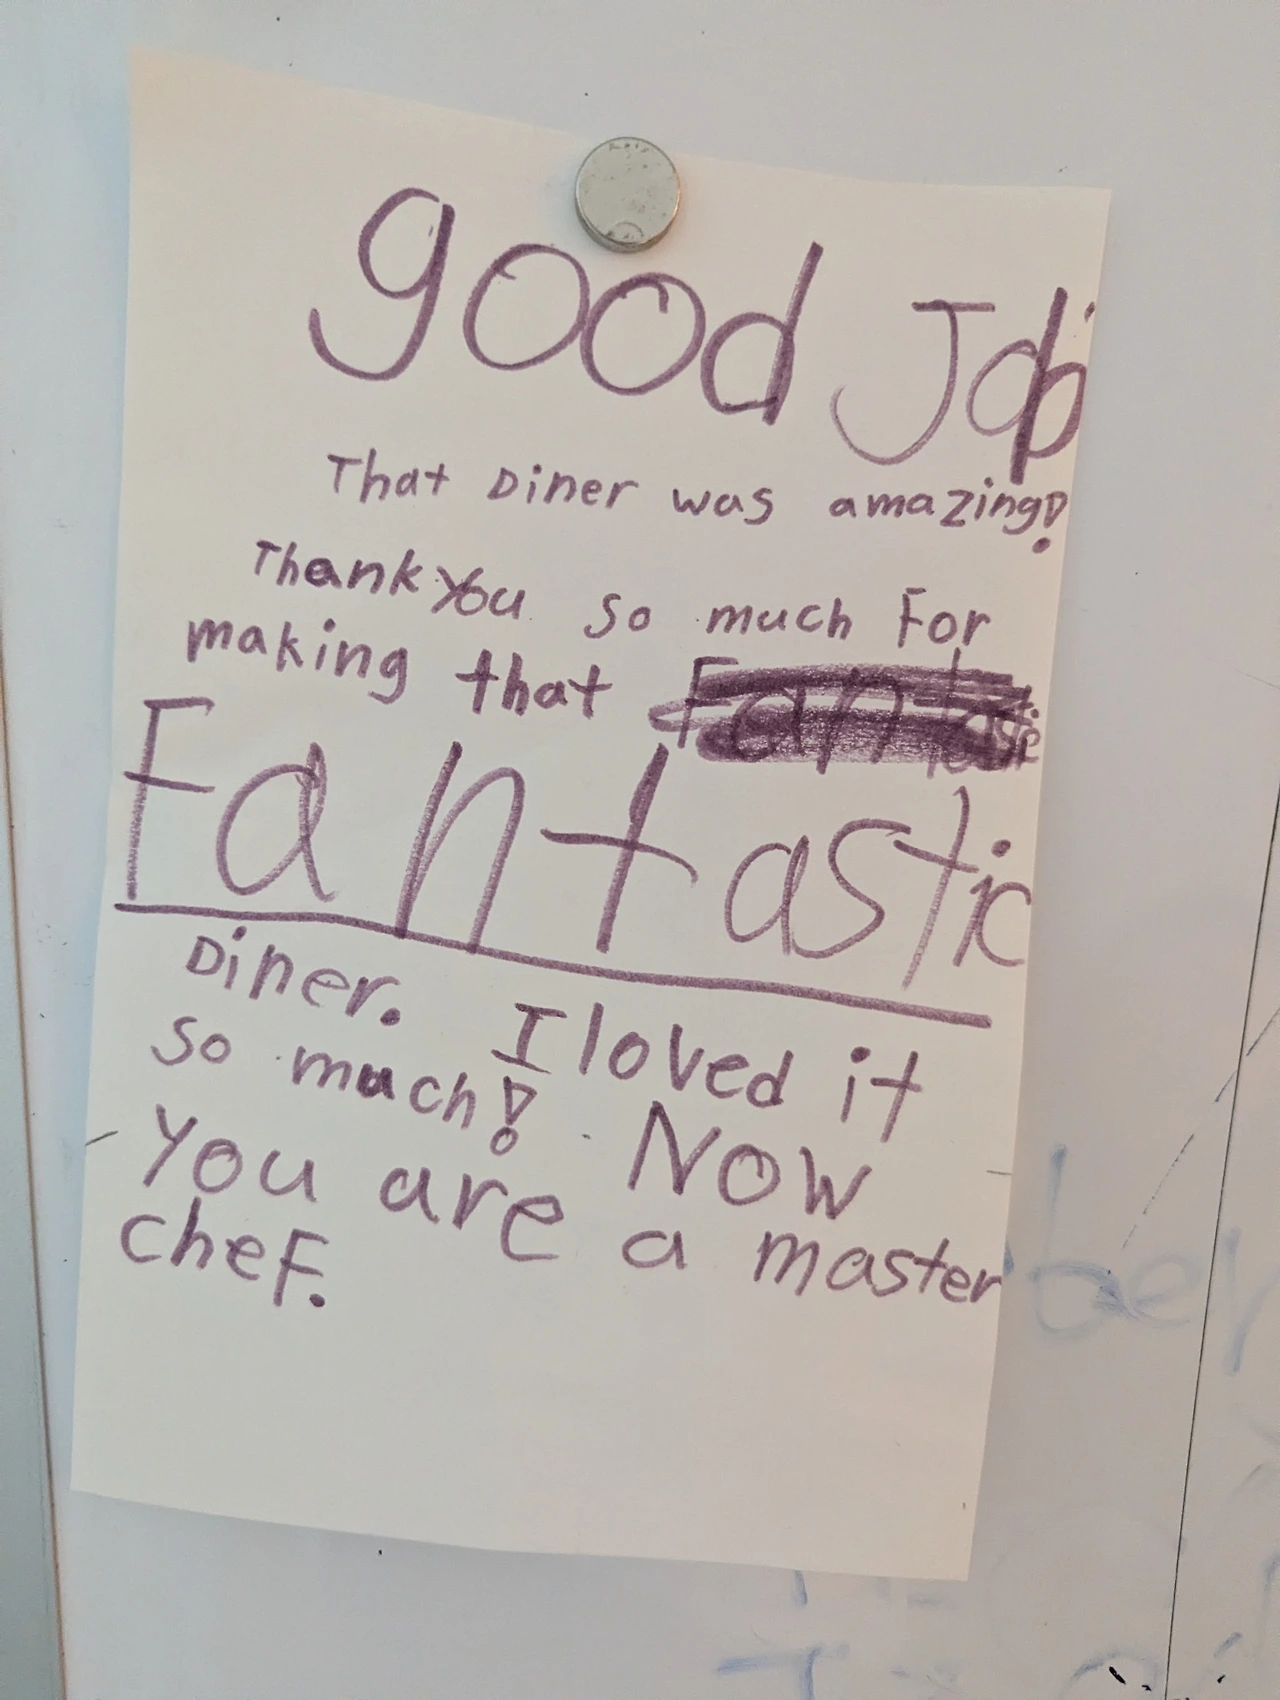 good Job
That Diner was amazing!
Thank you so much For
making that
Fantastic
Diner. I loved it
so much! Now
You are a master
cheF.